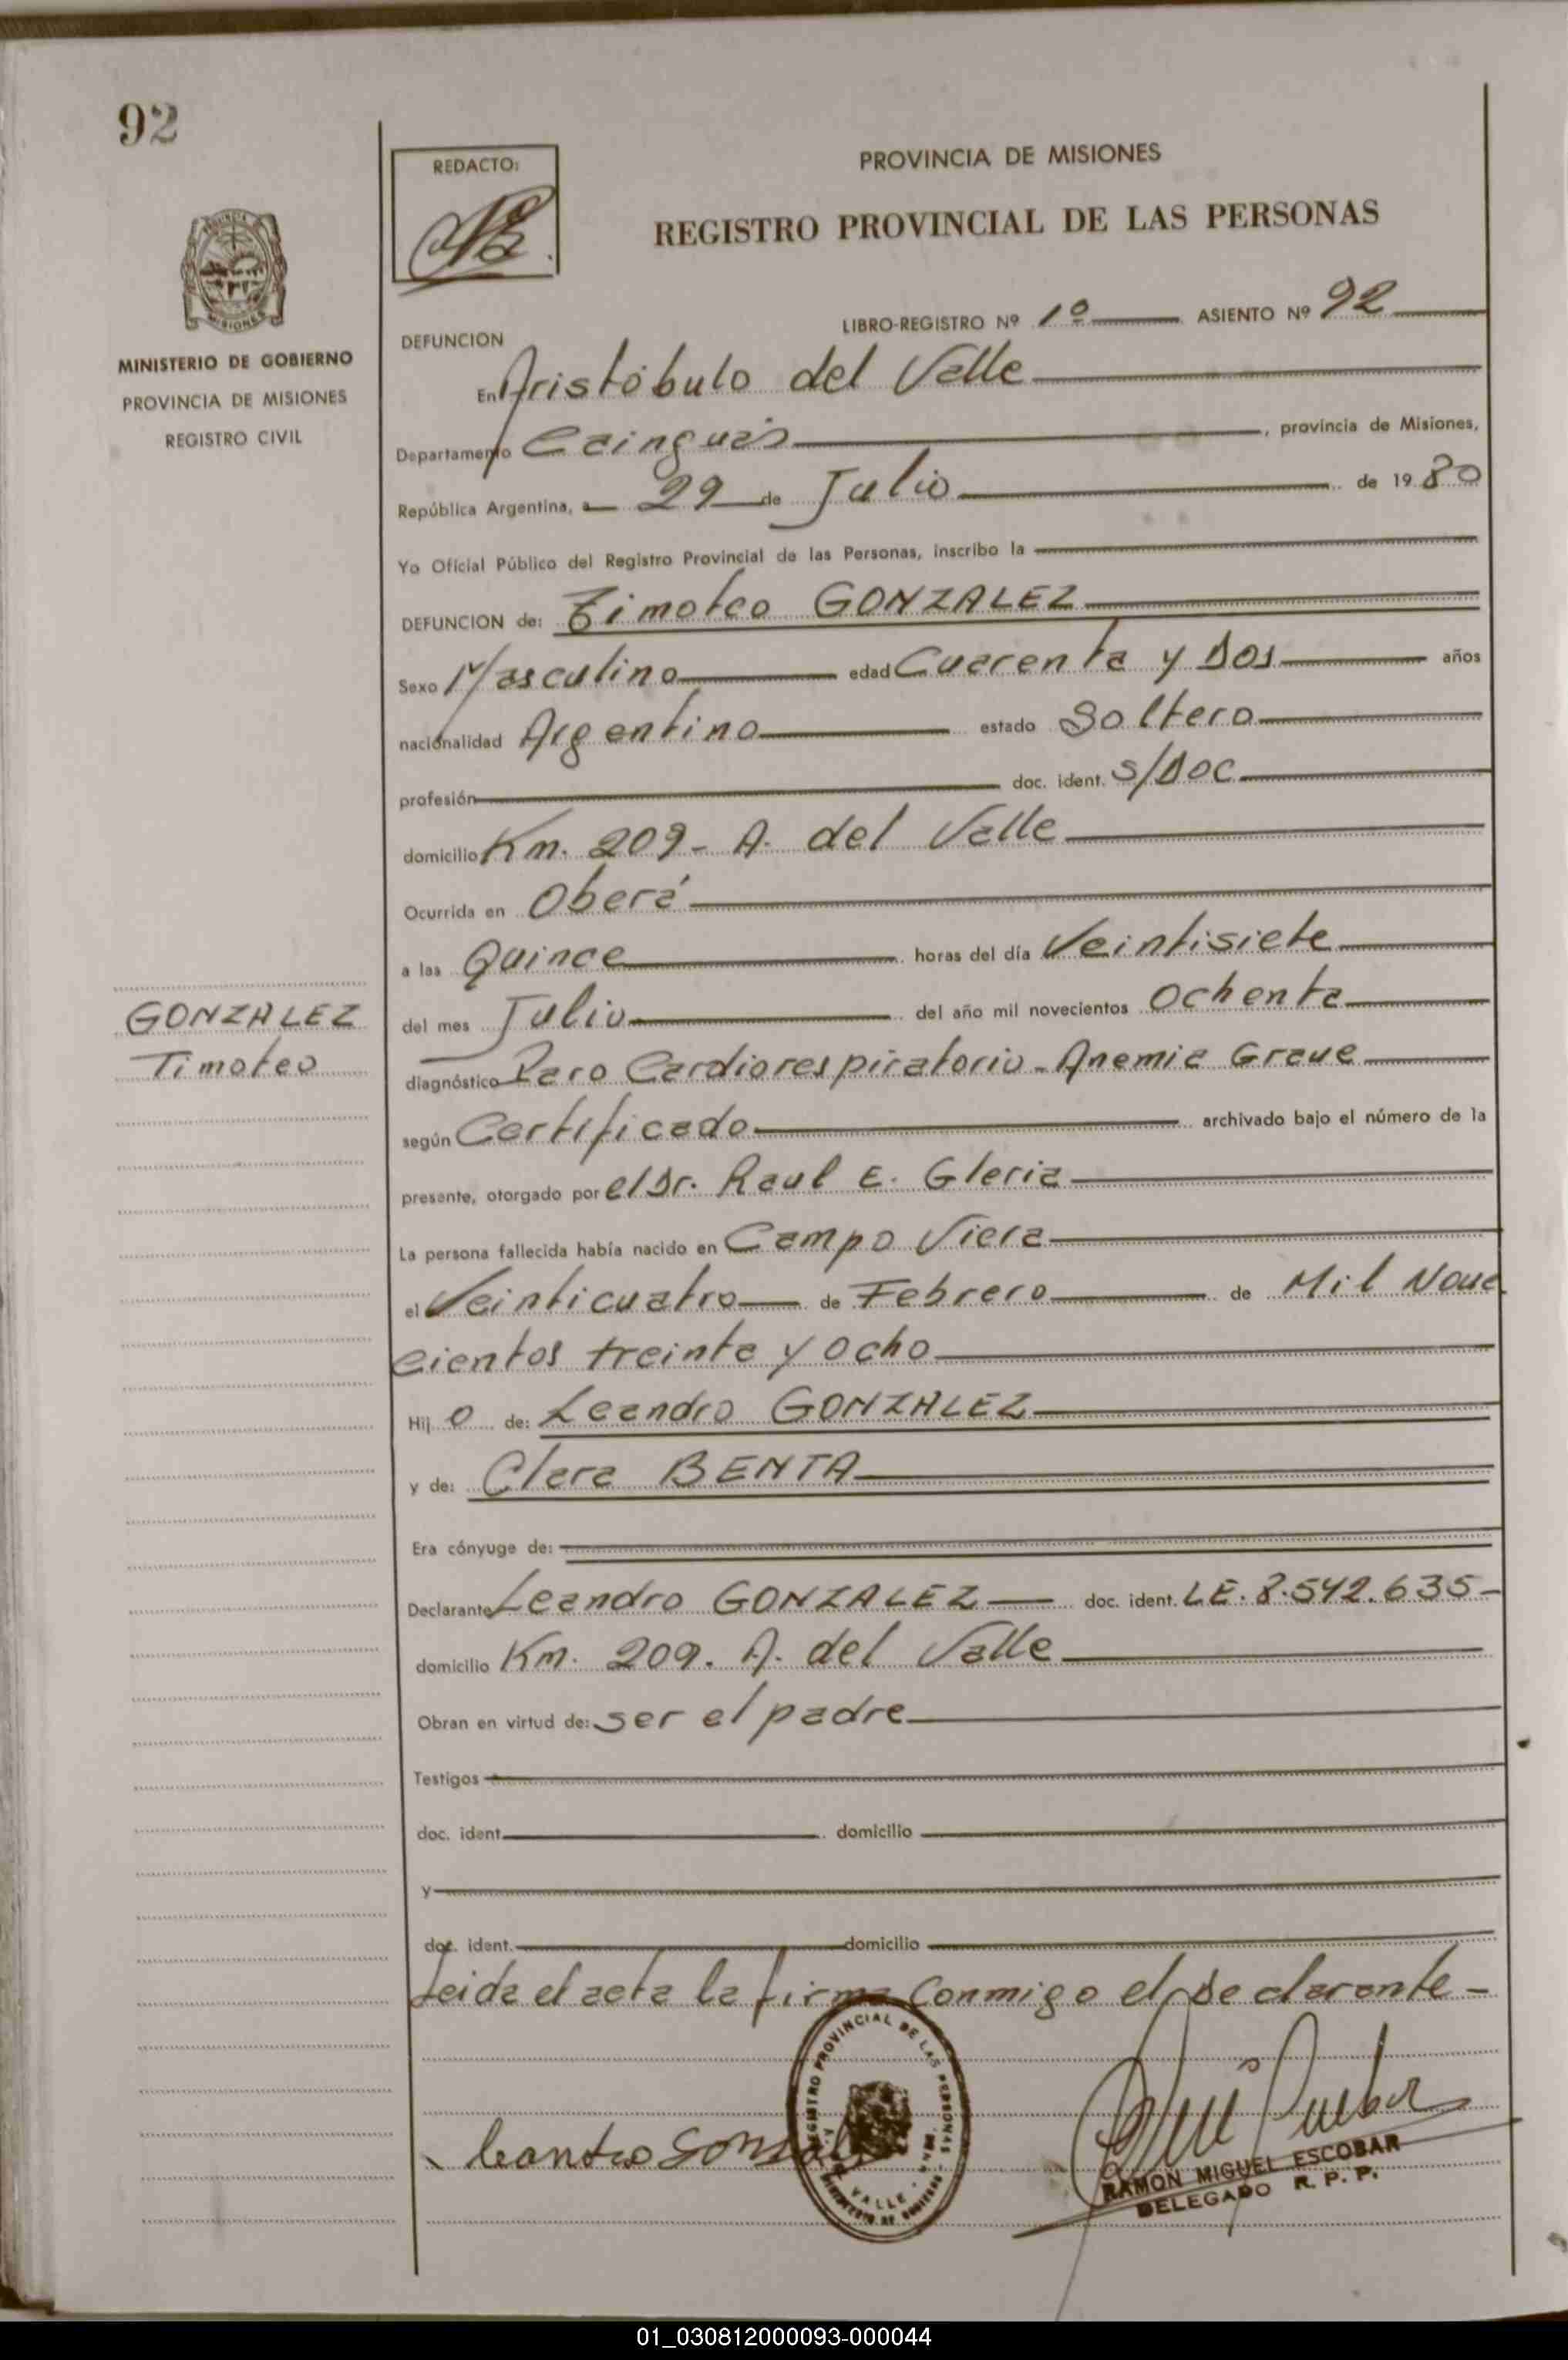 92
REDACTO:
PROVINCIA DE MISIONES
REGISTRO PROVINCIAL DE LAS PERSONAS
MISIONES
MINISTERIO DE GOBIERNO
PROVINCIA DE MISIONES
REGISTRO CIVIL
LIBRO-REGISTRO Nº 1º ASIENTO Nº 92
DEFUNCION
En Aristóbulo del Valle
Departamento Cainguás, provincia de Misiones,
República Argentina, a 29 de Julio de 1980
Yo Oficial Público del Registro Provincial de las Personas, inscribo la
DEFUNCION de: Timoteo GONZALEZ
Sexo Masculino edad Cuarenta y Dos años
nacionalidad Argentino estado Soltero
profesión doc. ident. S/DOC
domicilio Km. 209- A. del Valle
Ocurrida en Oberá
a las Quince horas del día Veintisiete
del mes Julio del año mil novecientos Ochenta
diagnóstico Paro Cardiorespiratorio - Anemia Grave
según Certificado archivado bajo el número de la
presente, otorgado por el Dr. Raul E. Gleria
La persona fallecida había nacido en Campo Viera
el Veinticuatro de Febrero de Mil Nove
cientos treinta y ocho
Hij o de: Leandro GONZALEZ
y de: Clara BENTA
Era cónyuge de:
Declarante Leandro GONZALEZ doc. ident. LE. 8.542.635-
domicilio Km. 209. A. del Valle
Obran en virtud de: ser el padre
Testigos
doc. ident. domicilio
y
doc. ident. domicilio
Leida el acta la firma Conmigo el Declarante -
GONZALEZ
Timoteo
REGISTRO PROVINCIAL DE LAS PERSONAS
VALLE
leandro
RAMON MIGUEL ESCOBAR
DELEGADO R. P. P.
01_030812000093-000044